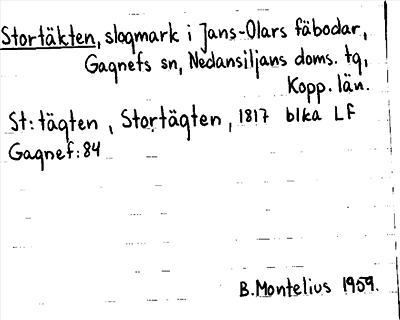 Stortäkten, slogmark i Jans-Olars fäbodar,
Gagnefs sn, Nedansiljans doms. tg,
Kopp. län.
St:tägten, Stortägten, 1817 blka LF
Gagnef:84
B.Montelius 1959.